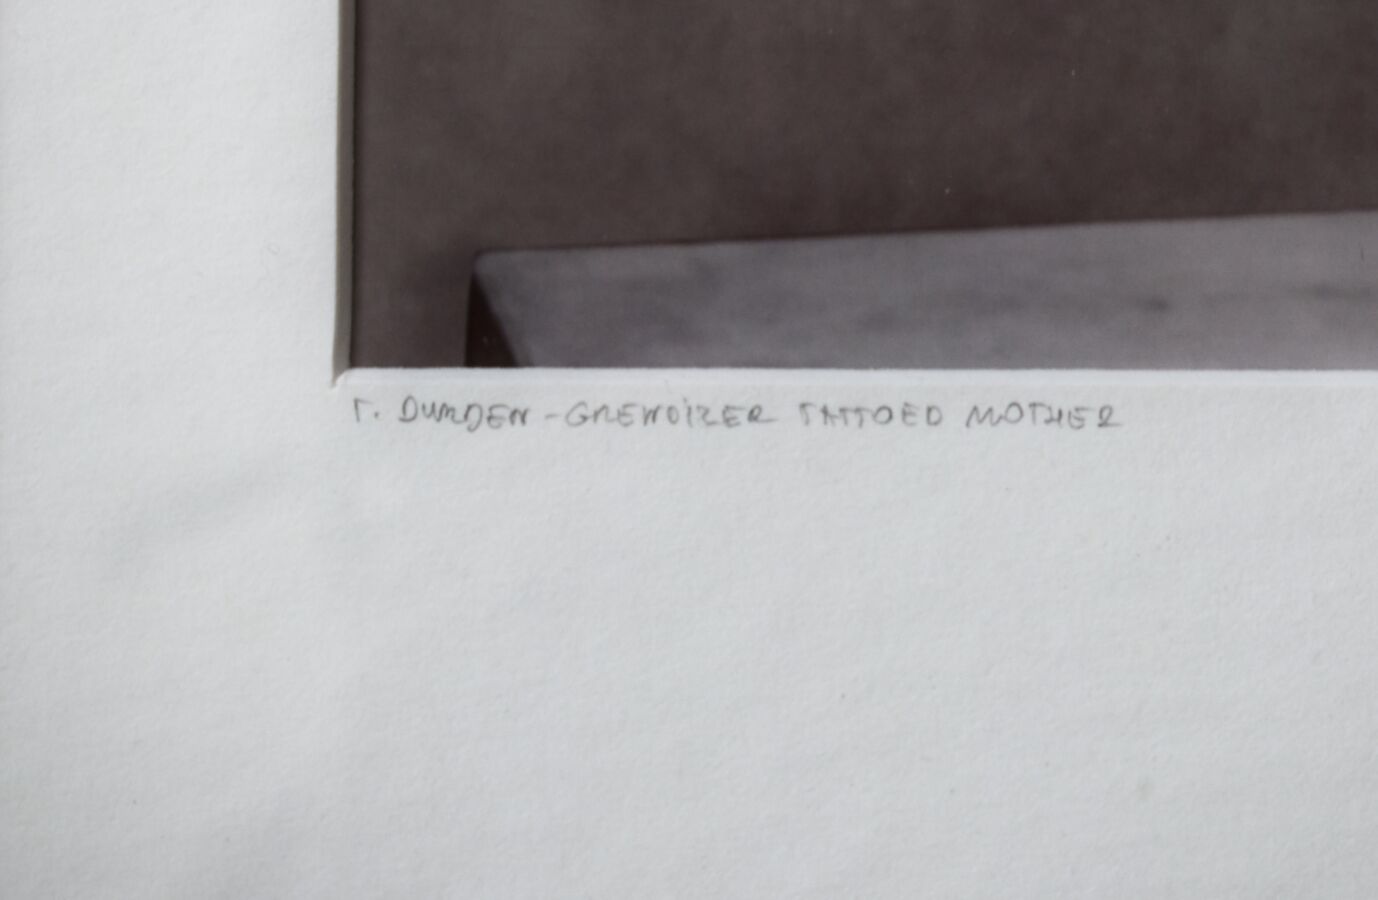 T. DURDEN - GRENOIZER TATTOED MOTHER